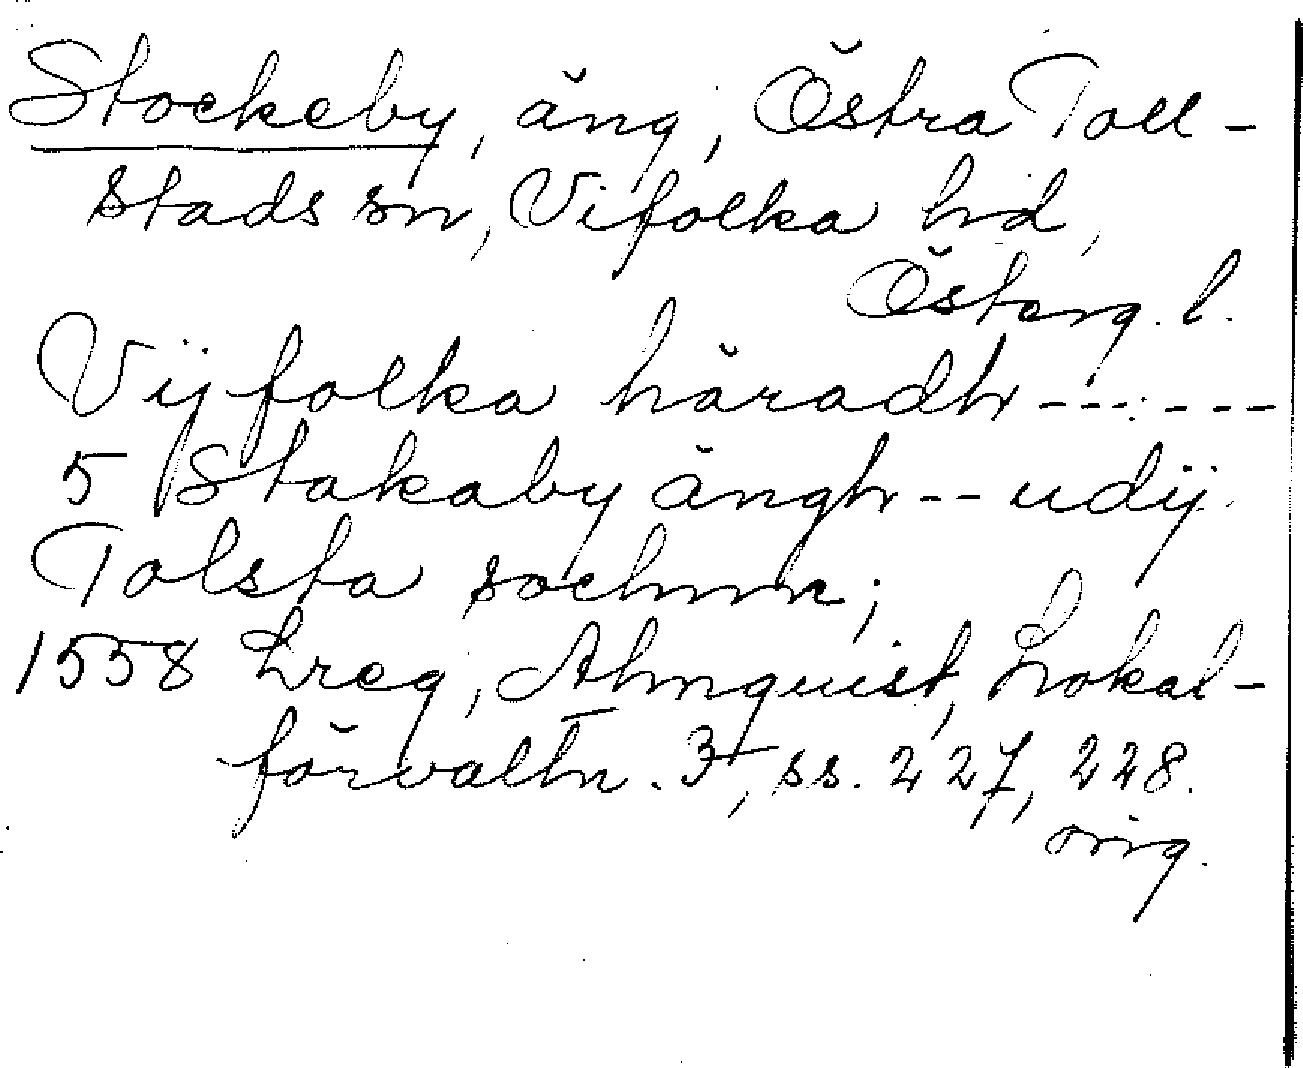 Stockeby, äng, Östra Toll-
stads sn, Vifolka hd,
Österg. l.
Vijfolka häradh ------
5 Stakaby ängh -- udij
Tolsta sochnn;
1558 Lreg, Almquist, Lokal-
förvaltn. 3, ss. 227, 228.
orig.